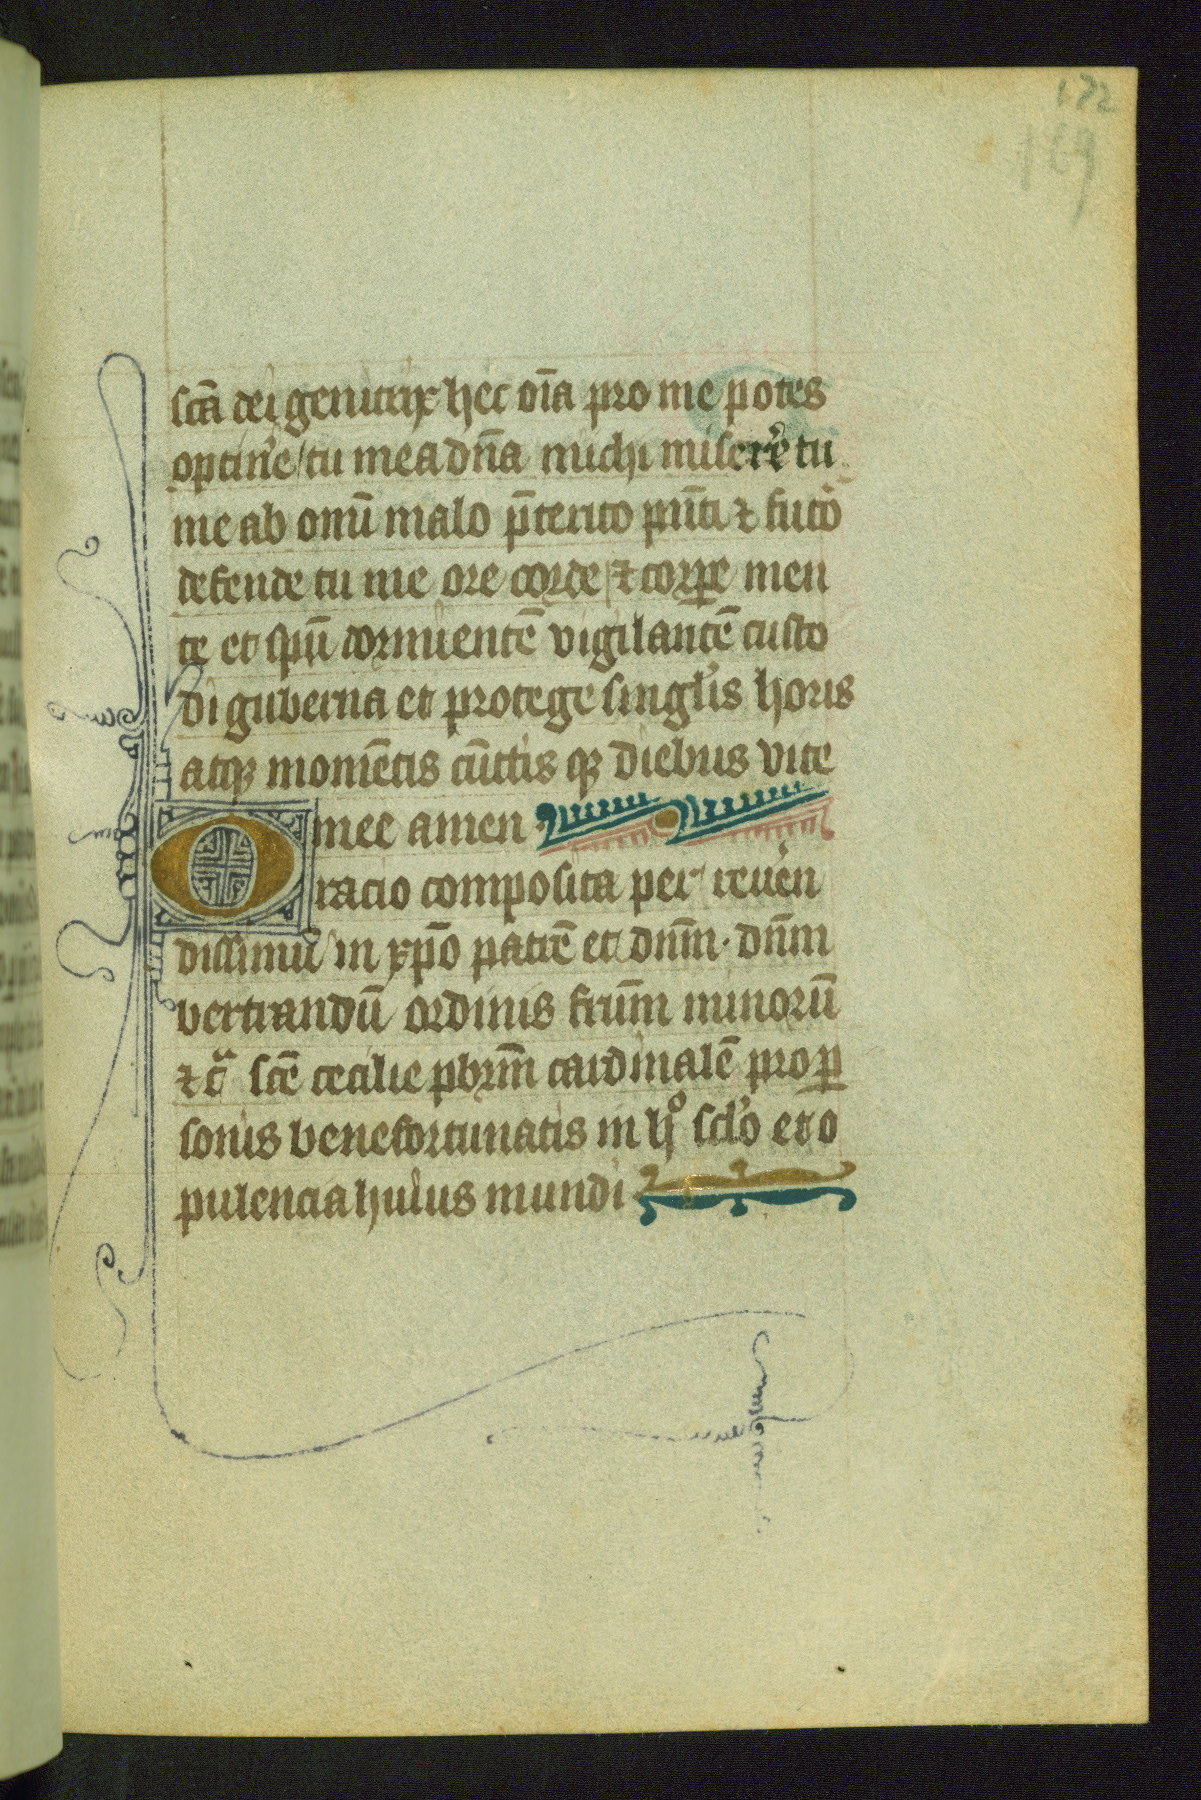 172
159
sc̄a dei genitrix hec oīa pro me potes
optin̉e / tu mea dn̄a michi miser̉e tu
me ab omī malo p̄terito pn̄ti ⁊ futo᷒
defende tu me ore corde / ⁊ corꝑe men
te et spū dormientē vigilantē custo
di guberna et protege singl̉is horis
atqꝫ momētis cūctis qꝫ diebus vite
mee amen
Oracio composita per reuēn
dissimū in xp̄o patrē et dn̄m · dn̄m
bertrandū ordinis frūm minorū
⁊ cᷓ sc̄e cecilie pbrm̄ cardinalē pro ꝑ
sonis benefortunatis in hͦ scl̉o et o
pulencia huius mundi